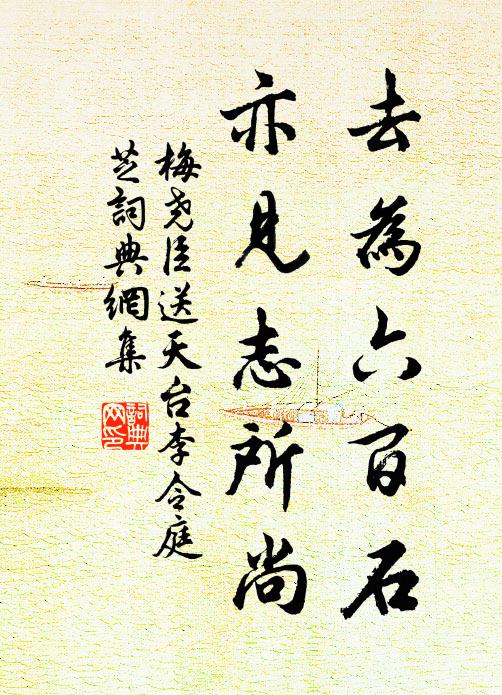 去為六百石
亦見志所尚
梅尧臣送天台李令庭
芝詞典網集
詞典
网印